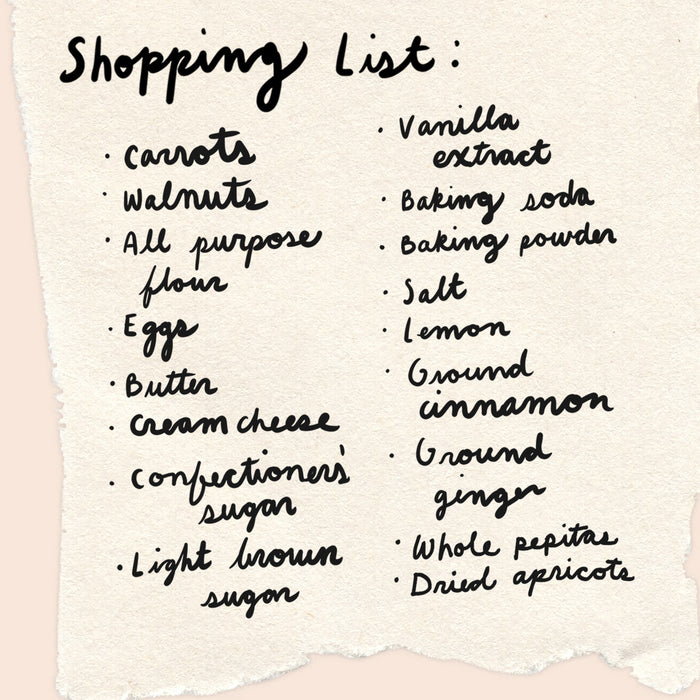 Shopping List:
· Carrots
· Walnuts
· All purpose
flour
· Eggs
· Butter
· Cream cheese
· Confectioners'
sugar
· Light brown
sugar
· Vanilla
extract
· Baking soda
· Baking powder
· Salt
· Lemon
· Ground
cinnamon
· Ground
ginger
· Whole pepitas
· Dried apricots